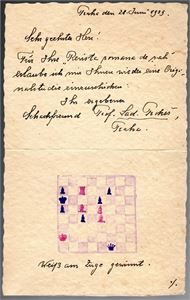 Praha den 28. Juni 1929
Sehr geehrter Herr!
Für Ihre Reviste romane de șah
erlaube ich mir Ihnen wieder eine Orig-
nalstudie einzureichen.
Ihr ergebener
Schachfreund Prof. Lad. Prokeš,
Praha.
Weiß am Zuge gewinnt.